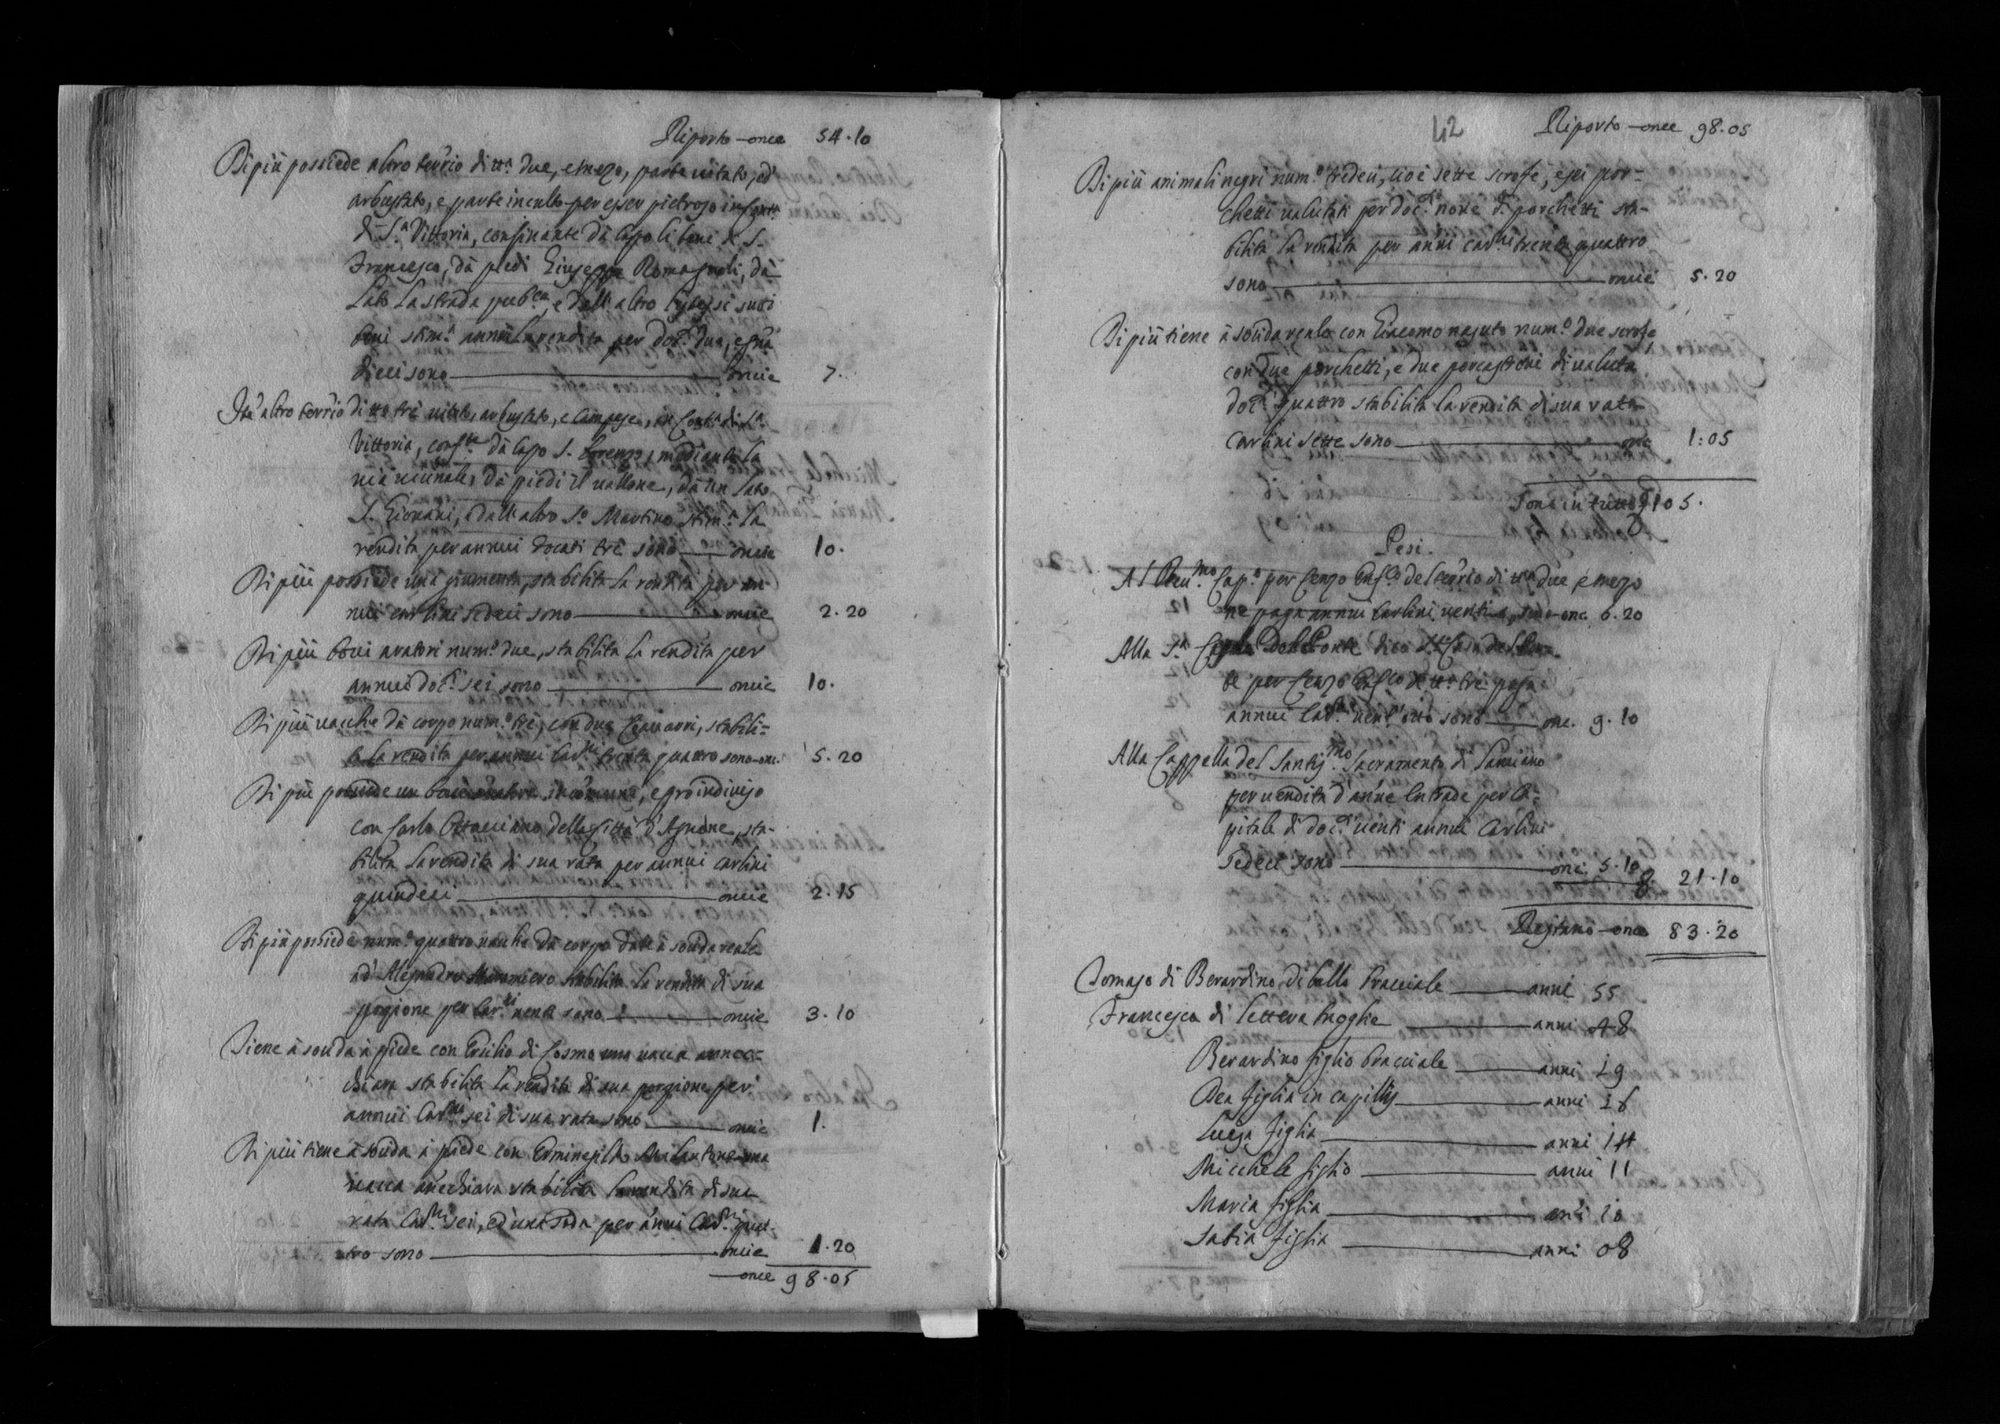 Riporto - once 54.10
Di più possiede altro terrio di tt.ª due, e mezo, parte vitato, ed
arbustato, e parte inculto per esser pietroso in Cont.ª
di S.ª Vittoria, confinante dà Capo li beni di S.
Francesco, dà piedi Giuseppe Romagnoli, dà
lato la strada pub.ca, e dall'altro
beni stim.ª annua la rendita per doc.ti due, e grª
dieci sono — oncie 7.
Itẽ altro terrio di tta trè vitato, arbustato, e Campese, in Cont.ª di S.ª
Vittoria, conf.te dà Capo S. Lorenzo, mediante la
via vicinale, dà piedi il vallone, dà un lato
S. Giovani, e dall'altro S.º Martino stim.ª la
rendita per annui docati trè sono — oncie 10.
Di più possiede una giumenta, stabilita la rendita per an-
nui carlini sedeci sono — oncie 2.20
Di più bovi aratori num.º due, stabilita la rendita per
annui doc.ti sei sono — oncie 10.
Di più vacche dà corpo num.º trè, con due, stabili-
ta la rendita per annui Car.ni trenta quattro sono - onc. 5.20
Di più possiede un bove aratore in comune, e proindiviso
con Carlo Ottaviano della Città d'Agnone, sta-
bilita la rendita di sua rata per annui carlini
quindeci — oncie 2.15
Di più possiede num.º quattro vacche dà corpo date à soccida reale
ad Alesandro stabilita la rendita di sua
porzione per Car.ni venti sono — oncie 3.10
Tiene à soccida à piede con di Cosmo una vacca annec-
chiara stabilita la rendita di sua porzione per
annui Car.ni sei di sua rata sono — oncie 1.
Di più tiene à soccida à piede con Erminegildo Milantone una
vacca annecchiara stabilita la rendita di sua
rata Car.ni sei, ed una soda per annui Car.ni quat-
tro sono — oncie 1.20
once 98.05
42
Riporto - once 98.05
Di più animali negri num.º tredeci, cioè sette scrofe, e sei por-
chetti valutati per doc.ti nove di porchetti sta-
bilita la rendita per anni car.ni trenta quattro
sono — oncie 5.20
Di più tiene à soccida reale con Giacomo nasuto num.º due scrofe
con due porchetti, e due porcastroni di valuta
doc.ti quattro stabilita la rendita di sua rata
carlini sette sono — onc. 1:05
Sono in tutto 105.
Pesi.
Al Reu.mo Cap.º per Cenzo del terrio di tta due, e mezo
ne paga annui Carlini venti sono - onc. 6.20
Alla S.ª del Ponte dico S.ª Casa del Pon-
te per Cenzo di tta trè paga
annui Car.ni vent'otto sono — onc. 9.10
Alla Cappella del Santiss.mo Sacramento di
per vendita d'anne entrade per ca-
pitale di doc.ti venti annui Carlini
sedeci sono — onc. 5.10
21.10
Restano - once 83.20
Tomaso di Berardino di bracciale — anni 55
Francesca di Lettera moglie — anni 48
Berardino figlio bracciale — anni 19
Dea figlia in capillis — anni 16
figlia — anni 14
Micchele figlio — anni 11
Maria figlia — anni 10
Sabia figlia — anni 08